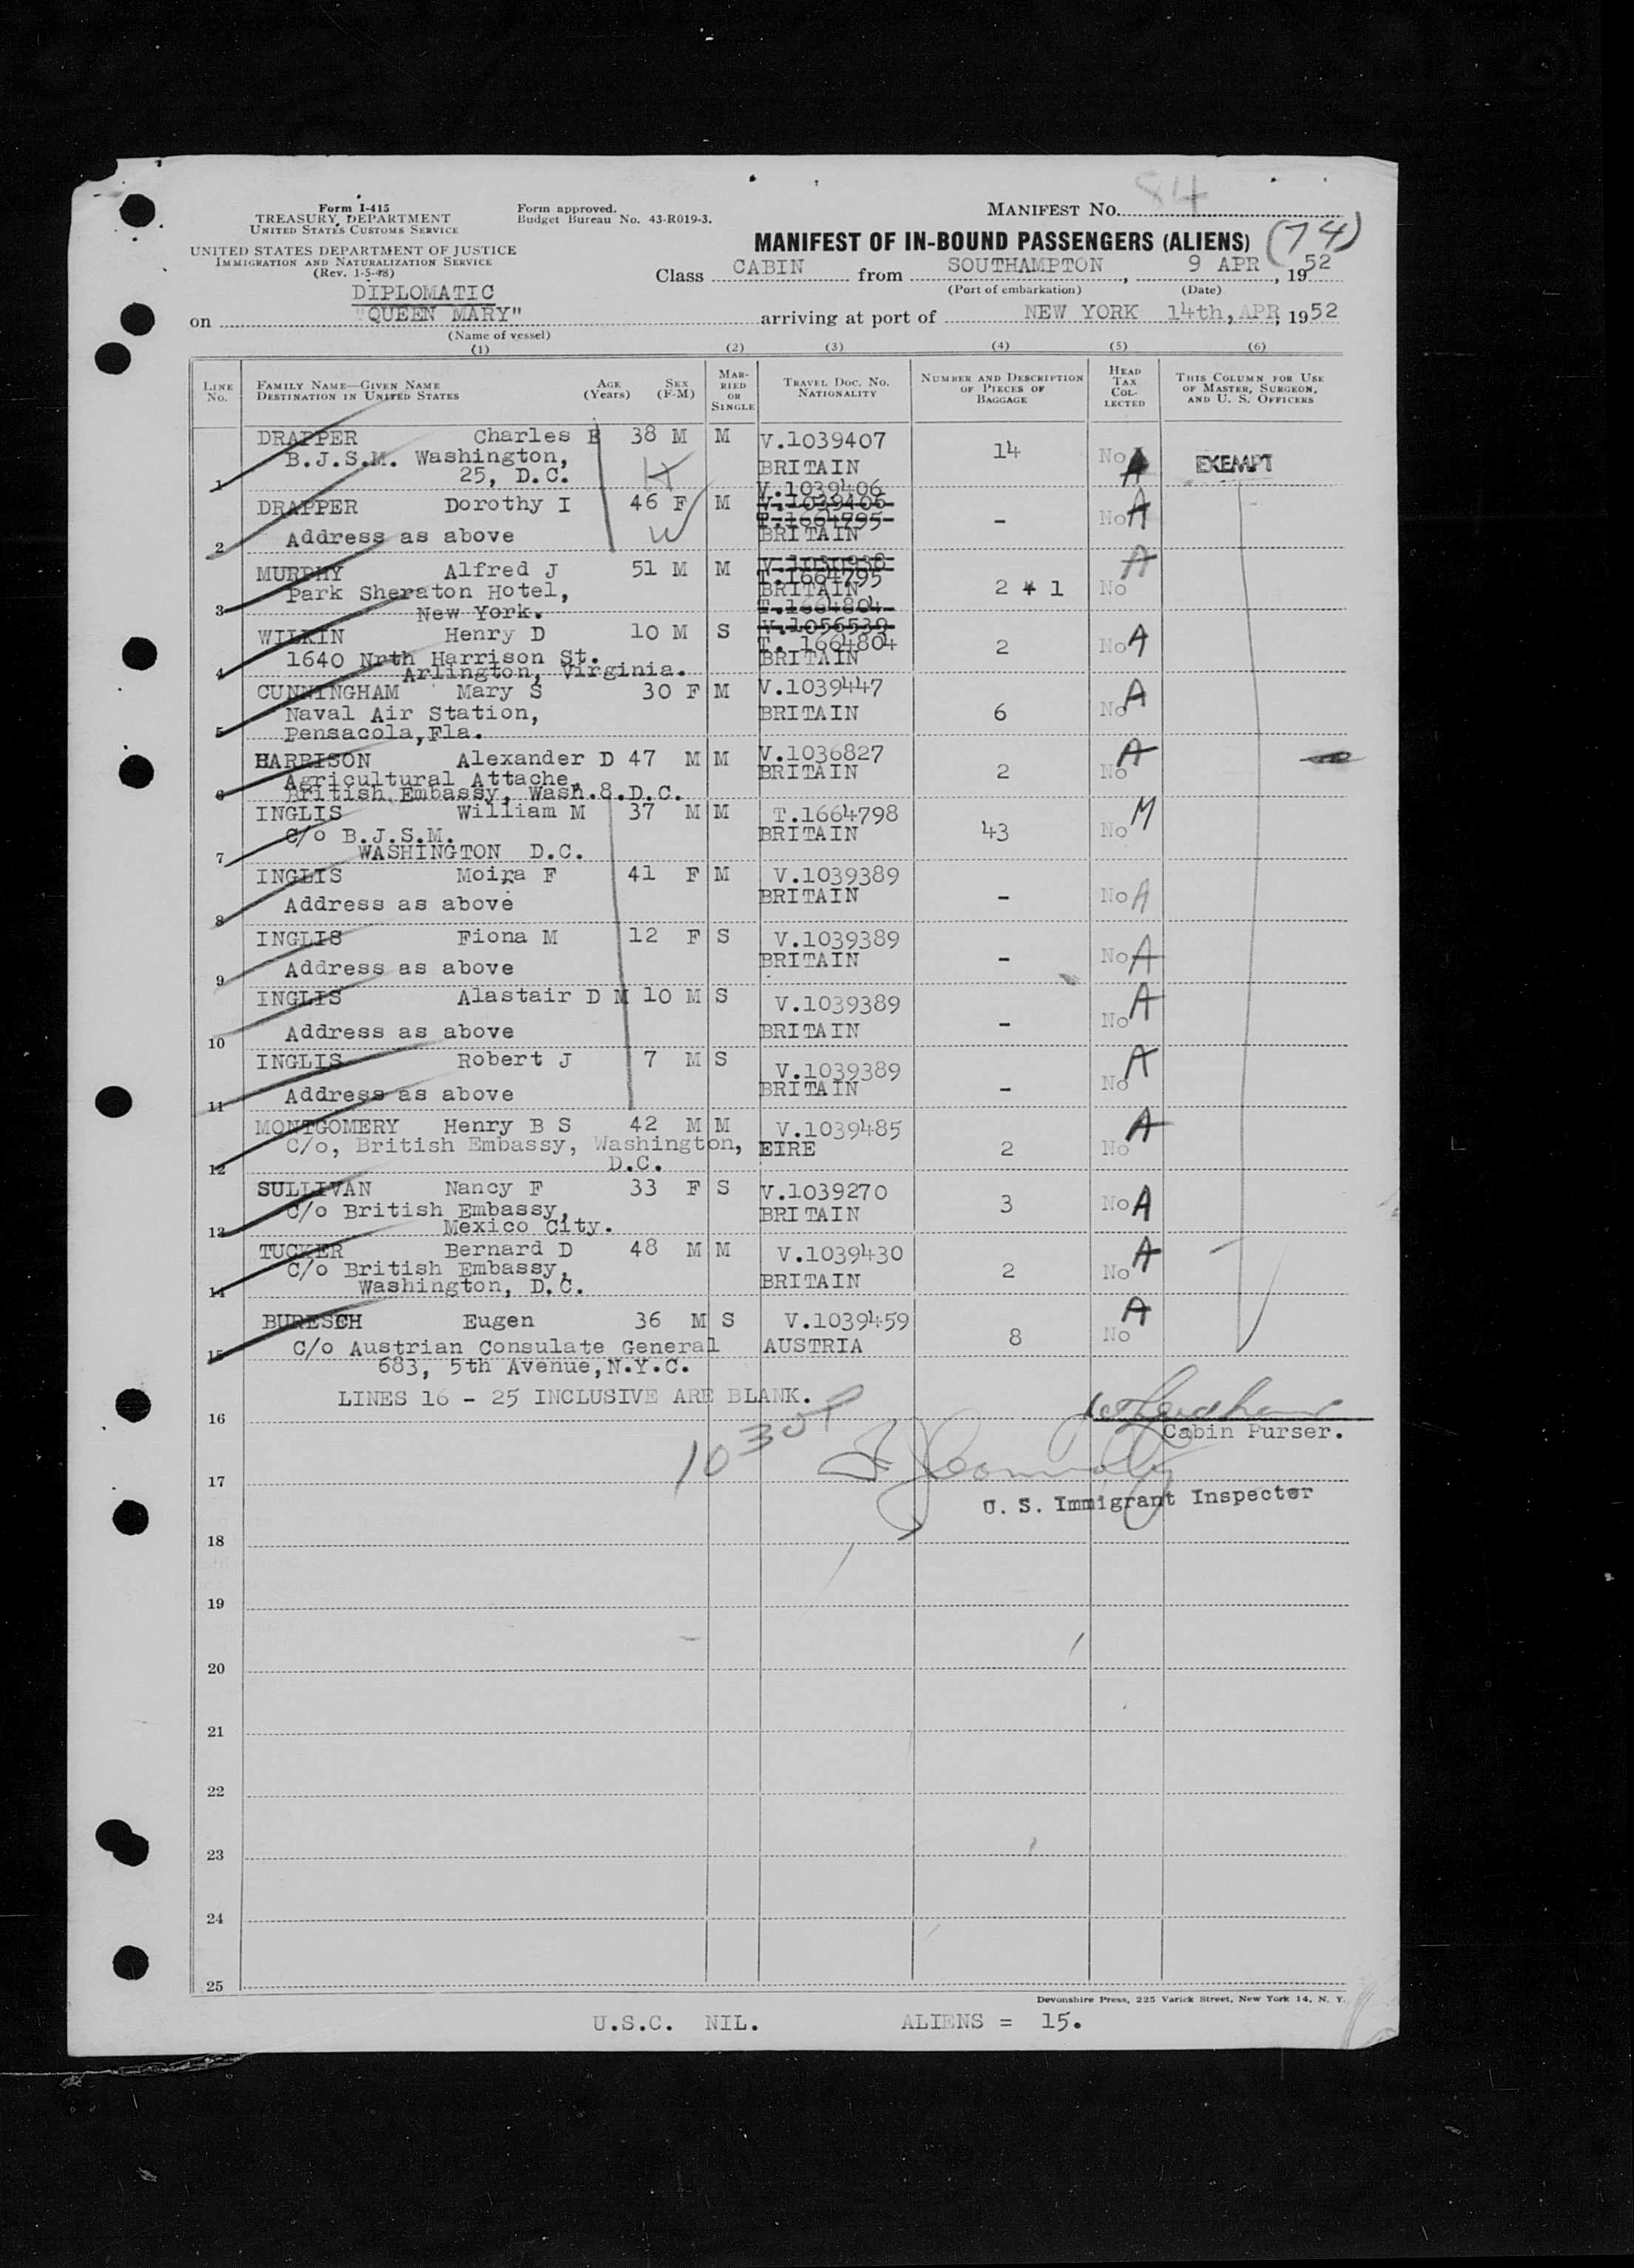 Form I-415
TREASURY DEPARTMENT
UNITED STATES CUSTOMS SERVICE
Form approved.
Budget Bureau No. 43-R019-3.
MANIFEST No. 84
UNITED STATES DEPARTMENT OF JUSTICE
IMMIGRATION AND NATURALIZATION SERVICE
(Rev. 1-5-48)
MANIFEST OF IN-BOUND PASSENGERS (ALIENS) (74)
Class CABIN from SOUTHAMPTON, 9 APR, 1952
(Port of embarkation) (Date)
DIPLOMATIC
on "QUEEN MARY" arriving at port of NEW YORK 14th, APR, 1952
(Name of vessel)
(1) (2) (3) (4) (5) (6)
LINE No. FAMILY NAME—GIVEN NAME DESTINATION IN UNITED STATES AGE (Years) SEX (F-M) MARRIED OR SINGLE TRAVEL DOC. NO. NATIONALITY NUMBER AND DESCRIPTION OF PIECES OF BAGGAGE HEAD TAX COLLECTED THIS COLUMN FOR USE OF MASTER, SURGEON, AND U. S. OFFICERS
DRAPPER Charles E 38 M M V.1039407 14 No A EXEMPT
B.J.S.M. Washington, BRITAIN
1 25, D.C. H
V.1039406
DRAPPER Dorothy I 46 F M V.1039406 - No A
T.1664795
2 Address as above W BRITAIN
MURPHY Alfred J 51 M M V.1030938 A
T.1664795
Park Sheraton Hotel, BRITAIN 2 + 1 No
3 New York. T.1664804
WILKIN Henry D 10 M S V.1056539
1640 Nrth Harrison St. T. 1664804 2 No A
4 Arlington, Virginia. BRITAIN
CUNNINGHAM Mary S 30 F M V.1039447 A
Naval Air Station, BRITAIN 6 No
5 Pensacola, Fla.
HARRISON Alexander D 47 M M V.1036827 A
Agricultural Attache, BRITAIN 2 No
6 British Embassy, Wash.8.D.C.
INGLIS William M 37 M M T.1664798 M
C/o B.J.S.M. BRITAIN 43 No
7 WASHINGTON D.C.
INGLIS Moira F 41 F M V.1039389
8 Address as above BRITAIN - No A
INGLIS Fiona M 12 F S V.1039389
9 Address as above BRITAIN - No A
INGLIS Alastair D M 10 M S V.1039389 A
10 Address as above BRITAIN - No
INGLIS Robert J 7 M S V.1039389 A
11 Address as above BRITAIN - No
MONTGOMERY Henry B S 42 M M V.1039485 A
C/o, British Embassy, Washington, EIRE 2 No
12 D.C.
SULLIVAN Nancy F 33 F S V.1039270
C/o British Embassy, BRITAIN 3 No A
13 Mexico City.
TUCKER Bernard D 48 M M V.1039430 A
C/o British Embassy, BRITAIN 2 No
14 Washington, D.C.
BURESCH Eugen 36 M S V.1039459 A
15 C/o Austrian Consulate General AUSTRIA 8 No
683, 5th Avenue, N.Y.C.
LINES 16 - 25 INCLUSIVE ARE BLANK.
16
Cabin Purser.
1030P
17
U. S. Immigrant Inspector
18
19
20
21
22
23
24
25
Devonshire Press, 225 Varick Street, New York 14, N. Y.
U.S.C. NIL. ALIENS = 15.